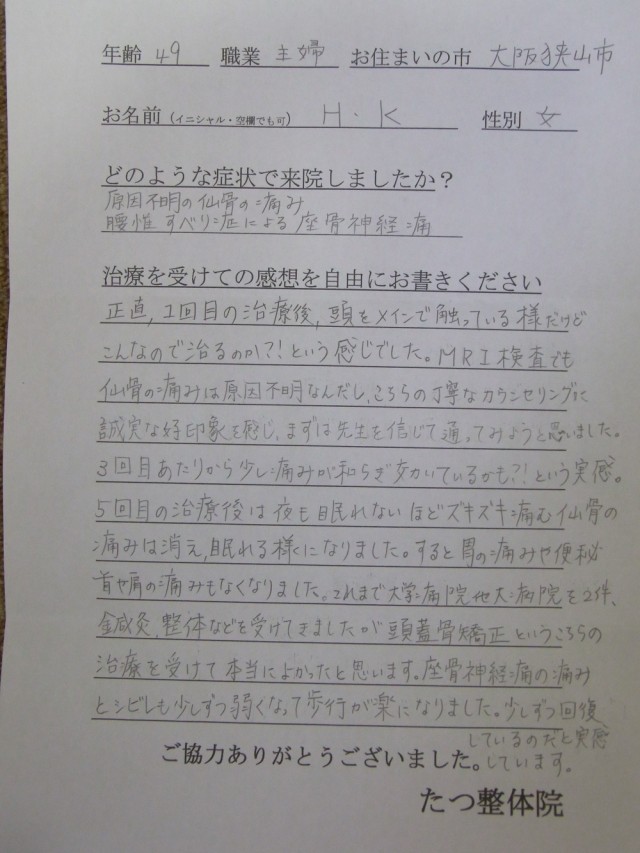 年齢 49 職業 主婦 お住まいの市 大阪狭山市
お名前(イニシャル・空欄でも可) H・K 性別 女
どのような症状で来院しましたか?
原因不明の仙骨の痛み
腰椎すべり症による座骨神経痛
治療を受けての感想を自由にお書きください
正直,1回目の治療後,頭をメインで触っている様だけど
こんなので治るのか?!という感じでした。MRI検査でも
仙骨の痛みは原因不明なんだし,こちらの丁寧なカウンセリングに
誠実な好印象を感じ,まずは先生を信じて通ってみようと思いました。
3回目あたりから少し痛みが和らぎ効いているかも?!という実感。
5回目の治療後は夜も眠れないほどズキズキ痛む仙骨の
痛みは消え,眠れる様になりました。すると胃の痛みや便秘
首や肩の痛みもなくなりました。これまで大学病院他大病院を2件、
鍼灸,整体などを受けてきましたが頭蓋骨矯正というこちらの
治療を受けて本当によかったと思います。座骨神経痛の痛み
とシビレも少しずつ弱くなって歩行が楽になりました。少しずつ回復
しているのだと実感
しています。
ご協力ありがとうございました。
たつ整体院